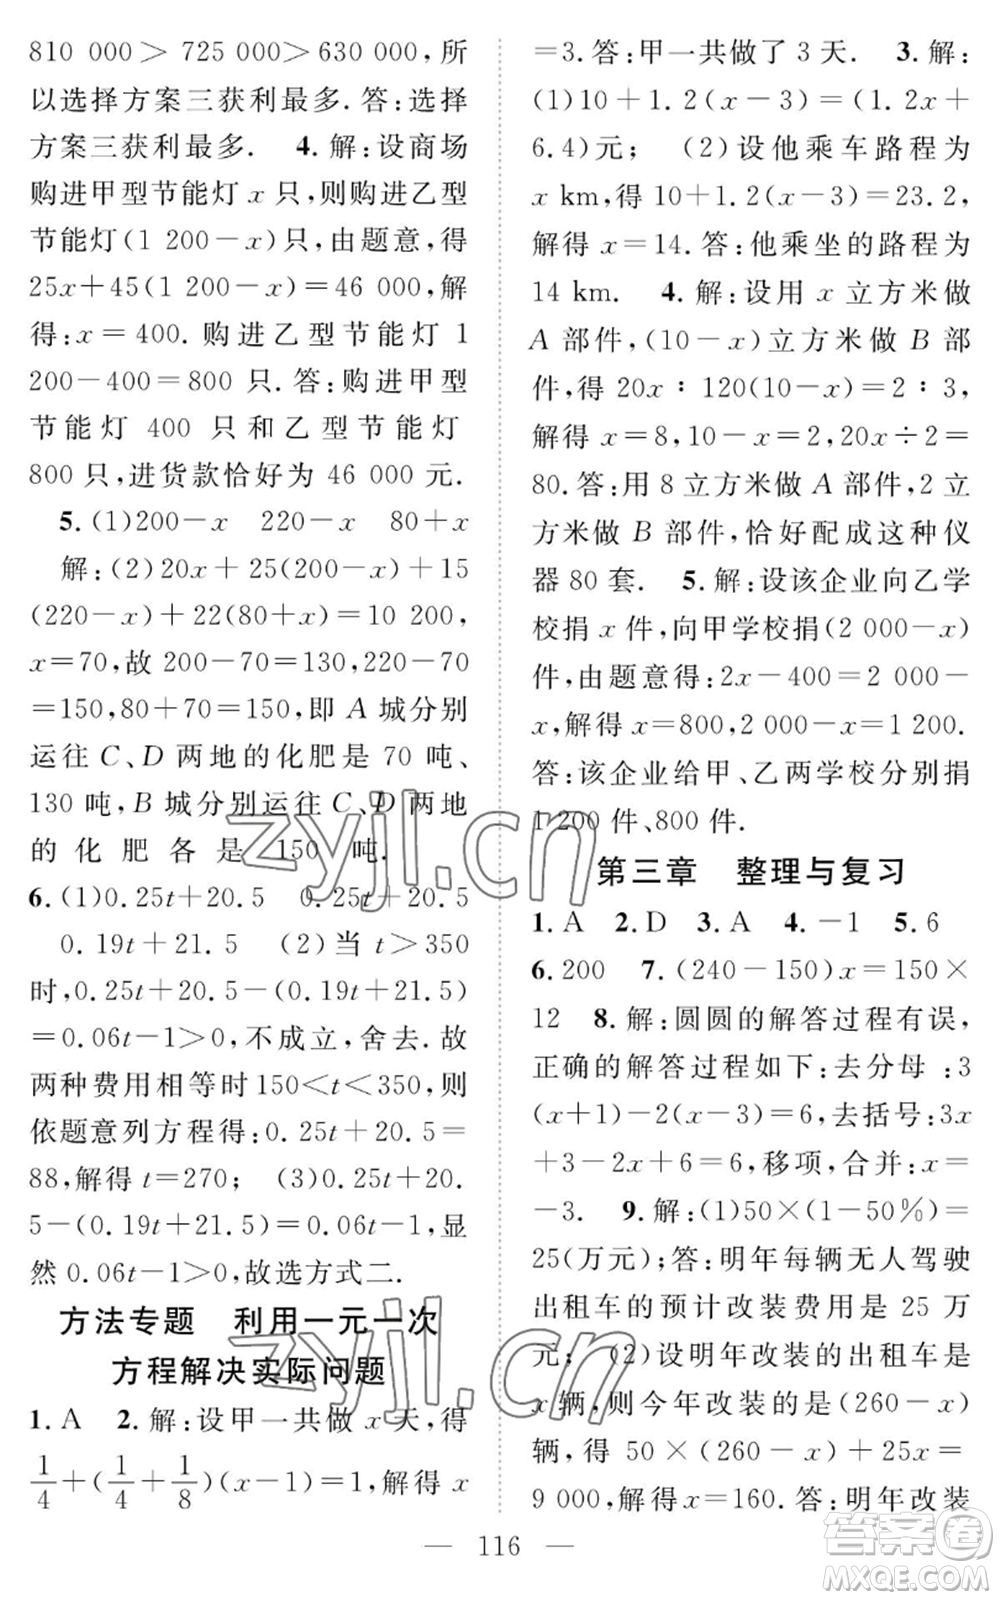 810 000＞725 000＞630 000,所
以选择方案三获利最多.答:选择
方案三获利最多. 4.解:设商场
购进甲型节能灯 x 只,则购进乙型
节能灯(1 200－x)只,由题意,得
25x＋45(1 200－x)＝46 000,解
得:x＝400.购进乙型节能灯 1
200－400＝800 只.答:购进甲型
节能灯 400 只和乙型节能灯
800 只,进货款恰好为 46 000 元.
5.(1)200－x 220－x 80＋x
解:(2)20x＋25(200－x)＋15
(220－x)＋22(80＋x)＝10 200,
x＝70,故 200－70＝130,220－70
＝150,80＋70＝150,即 A 城分别
运往 C、D 两地的化肥是 70 吨、
130 吨,B 城分别运往 C、D 两地
的化肥各是 150 吨.
6.(1)0.25t＋20.5 0.25t＋20.5
0.19t＋21.5 (2)当 t＞350
时,0.25t＋20.5－(0.19t＋21.5)
＝0.06t－1＞0,不成立,舍去.故
两种费用相等时150＜t＜350,则
依题意列方程得:0.25t＋20.5＝
88,解得 t＝270; (3)0.25t＋20.
5－(0.19t＋21.5)＝0.06t－1,显
然 0.06t－1＞0,故选方式二.
方法专题 利用一元一次
方程解决实际问题
1.A 2.解:设甲一共做 x 天,得
1/4＋(1/4＋1/8)(x－1)＝1,解得 x
＝3.答:甲一共做了 3 天. 3.解:
(1)10＋1.2(x－3)＝(1.2x＋
6.4)元; (2)设他乘车路程为
x km,得 10＋1.2(x－3)＝23.2,
解得 x＝14.答:他乘坐的路程为
14 km. 4.解:设用 x 立方米做
A 部件,(10－x)立方米做 B 部
件,得 20x∶120(10－x)＝2∶3,
解得 x＝8,10－x＝2,20x÷2＝
80.答:用 8 立方米做 A 部件,2 立
方米做 B 部件,恰好配成这种仪
器 80 套. 5.解:设该企业向乙学
校捐 x 件,向甲学校捐(2 000－x)
件,由题意得:2x－400＝2 000－
x,解得 x＝800,2000－x＝1 200.
答:该企业给甲、乙两学校分别捐
1 200 件、800 件.
第三章 整理与复习
1.A 2.D 3.A 4.－1 5.6
6.200 7.(240－150)x＝150×
12 8.解:圆圆的解答过程有误,
正确的解答过程如下:去分母 :3
(x＋1)－2(x－3)＝6,去括号:3x
＋3－2x＋6＝6,移项,合并:x＝
－3. 9.解:(1)50×(1－50%)＝
25(万元);答:明年每辆无人驾驶
出租车的预计改装费用是 25 万
元; (2)设明年改装的出租车是
x 辆,则今年改装的是(260－x)
辆,得 50×(260－x)＋25x＝
9 000,解得 x＝160.答:明年改装
— 116 —
zyjl.cn
zyjl.cn
答案卷
MXQE.COM